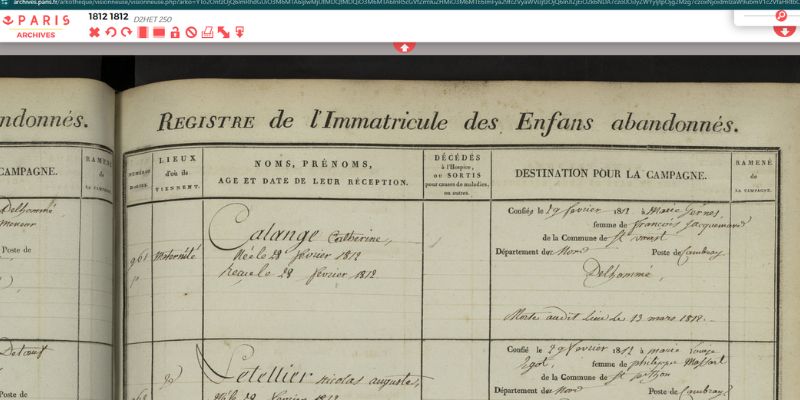 archives.paris.fr/arkotheque/visionneuse/visionneuse.php
PARIS
ARCHIVES
1812 1812 D2HET 250
andonnés.
REGISTRE de l'Immatricule des Enfans abandonnés.
CAMPAGNE.
RAMENÉ
de
LA CAMPAGNE.
NUMÉROS
LIEUX
d'où ils
VIENNENT.
NOMS, PRÉNOMS,
AGE ET DATE DE LEUR RÉCEPTION.
DÉCÉDÉS
à l'Hospice,
ou SORTIS
pour causes de maladies,
ou autres.
DESTINATION POUR LA CAMPAGNE.
RAMENÉ
de
LA CAMPAGNE.
Delhommé,
Poste de
961
Maternité
Catange Catherine,
Née le 28 février 1812
Reçue le 28 février 1812
Confiée le 29 février 1812 à Marie
femme de françois Jacquemard
de la Commune de St
Département du Nord Poste de Cambray
Delhommé,
Morte audit lieu le 13 mars 1812.
Poste de
Letellier Nicolas auguste,
Né le 29 1812
Confié le 29 février 1812 à marie
femme de philippe
de la Commune de St
Département du Nord Poste de Cambray